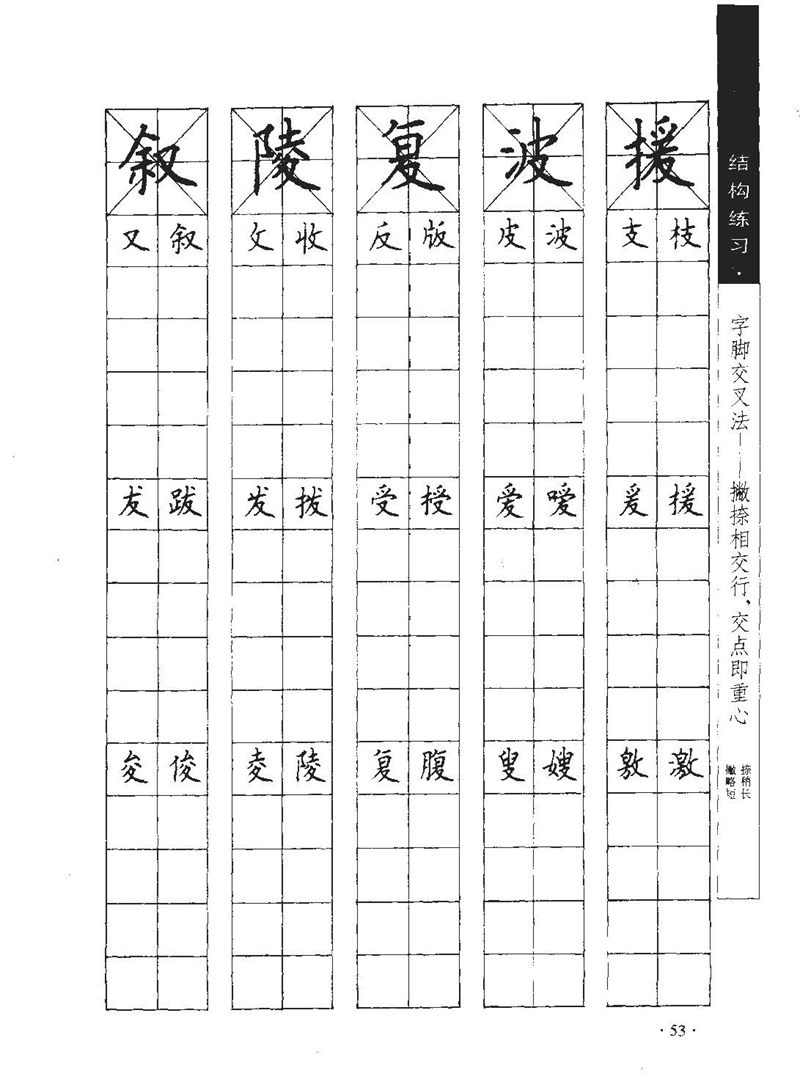 结构练习·
字脚交叉法——撇捺相交行，交点即重心
捺稍长
撇略短
叙 陵 复 波 援
又 叙 攵 收 反 版 皮 波 支 枝
友 跋 发 拨 受 授 爱 嗳 爰 援
夋 俊 夌 陵 复 腹 叟 嫂 敫 激
·53·